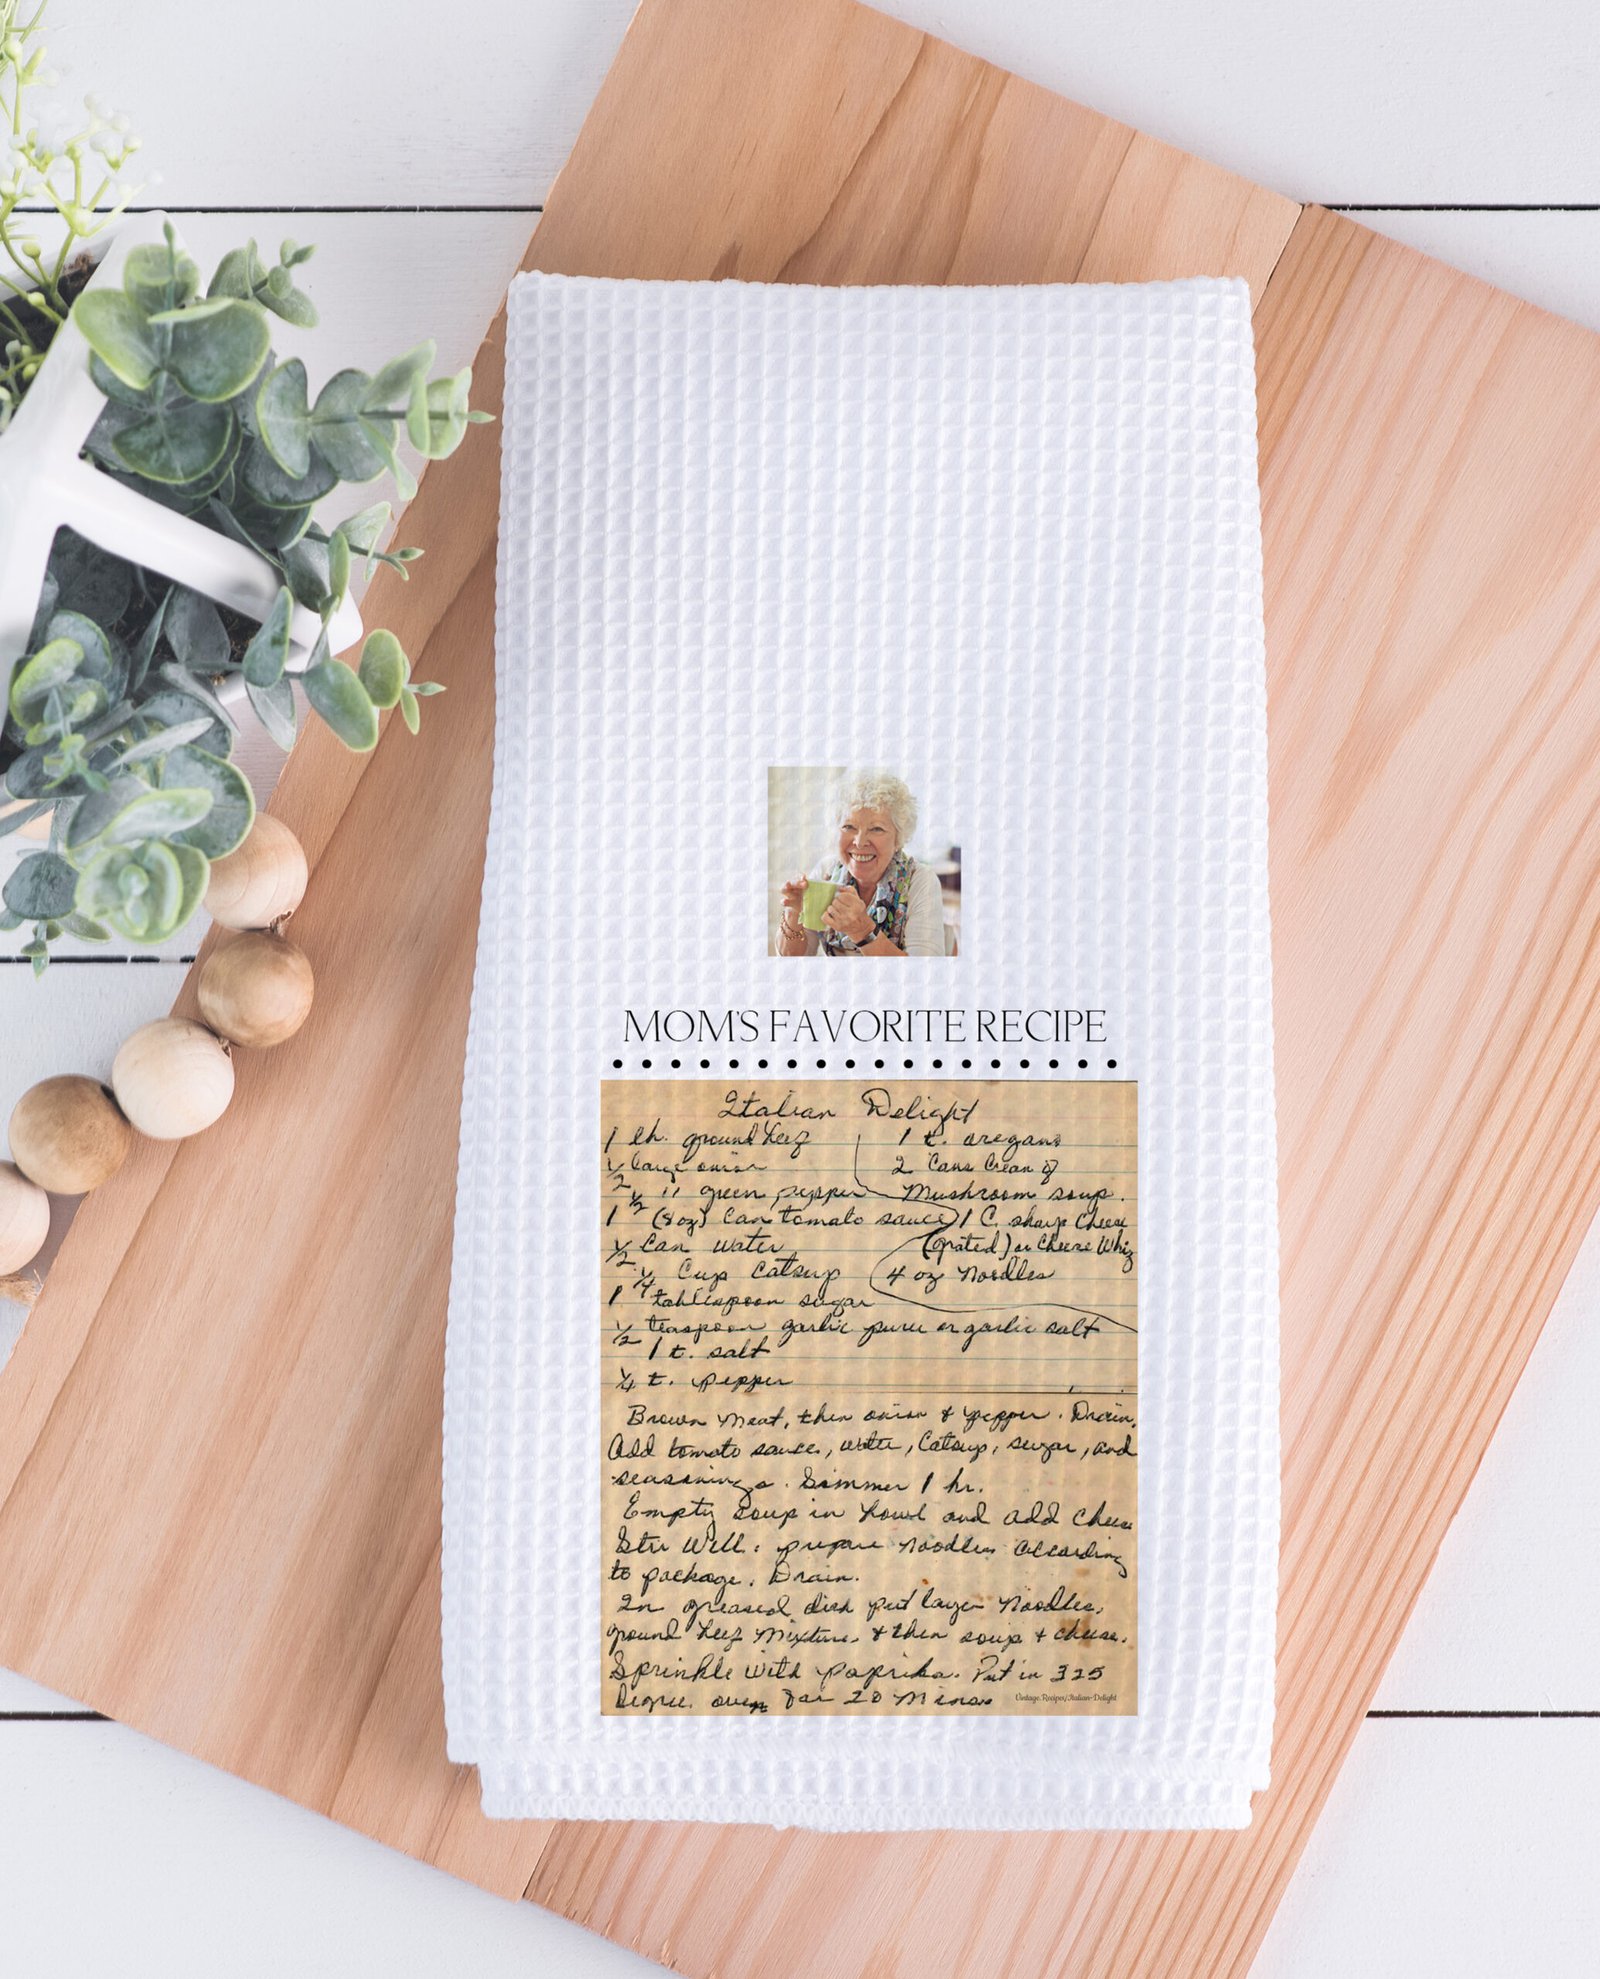 MOM'S FAVORITE RECIPE
Italian Delight
1 lb. ground beef
1/2 large onion
1/2 " green pepper
1 (8 oz) can tomato sauce
1/2 can water
1/4 cup catsup
1 tablespoon sugar
1/2 teaspoon garlic puree or garlic salt
1 t. salt
1/4 t. pepper
1 t. oregano
2 cans cream of
mushroom soup.
1 C. sharp cheese
(grated) or cheese whiz
4 oz noodles
Brown meat, then onion & pepper. Drain.
Add tomato sauce, water, catsup, sugar, and
seasonings. Simmer 1 hr.
Empty soup in bowl and add cheese
Stir well. prepare noodles according
to package. Drain.
In greased dish put layer noodles,
ground beef mixture, & then soup & cheese.
Sprinkle with paprika. Put in 325
degree oven for 20 mins
Vintage.Recipes/Italian-Delight